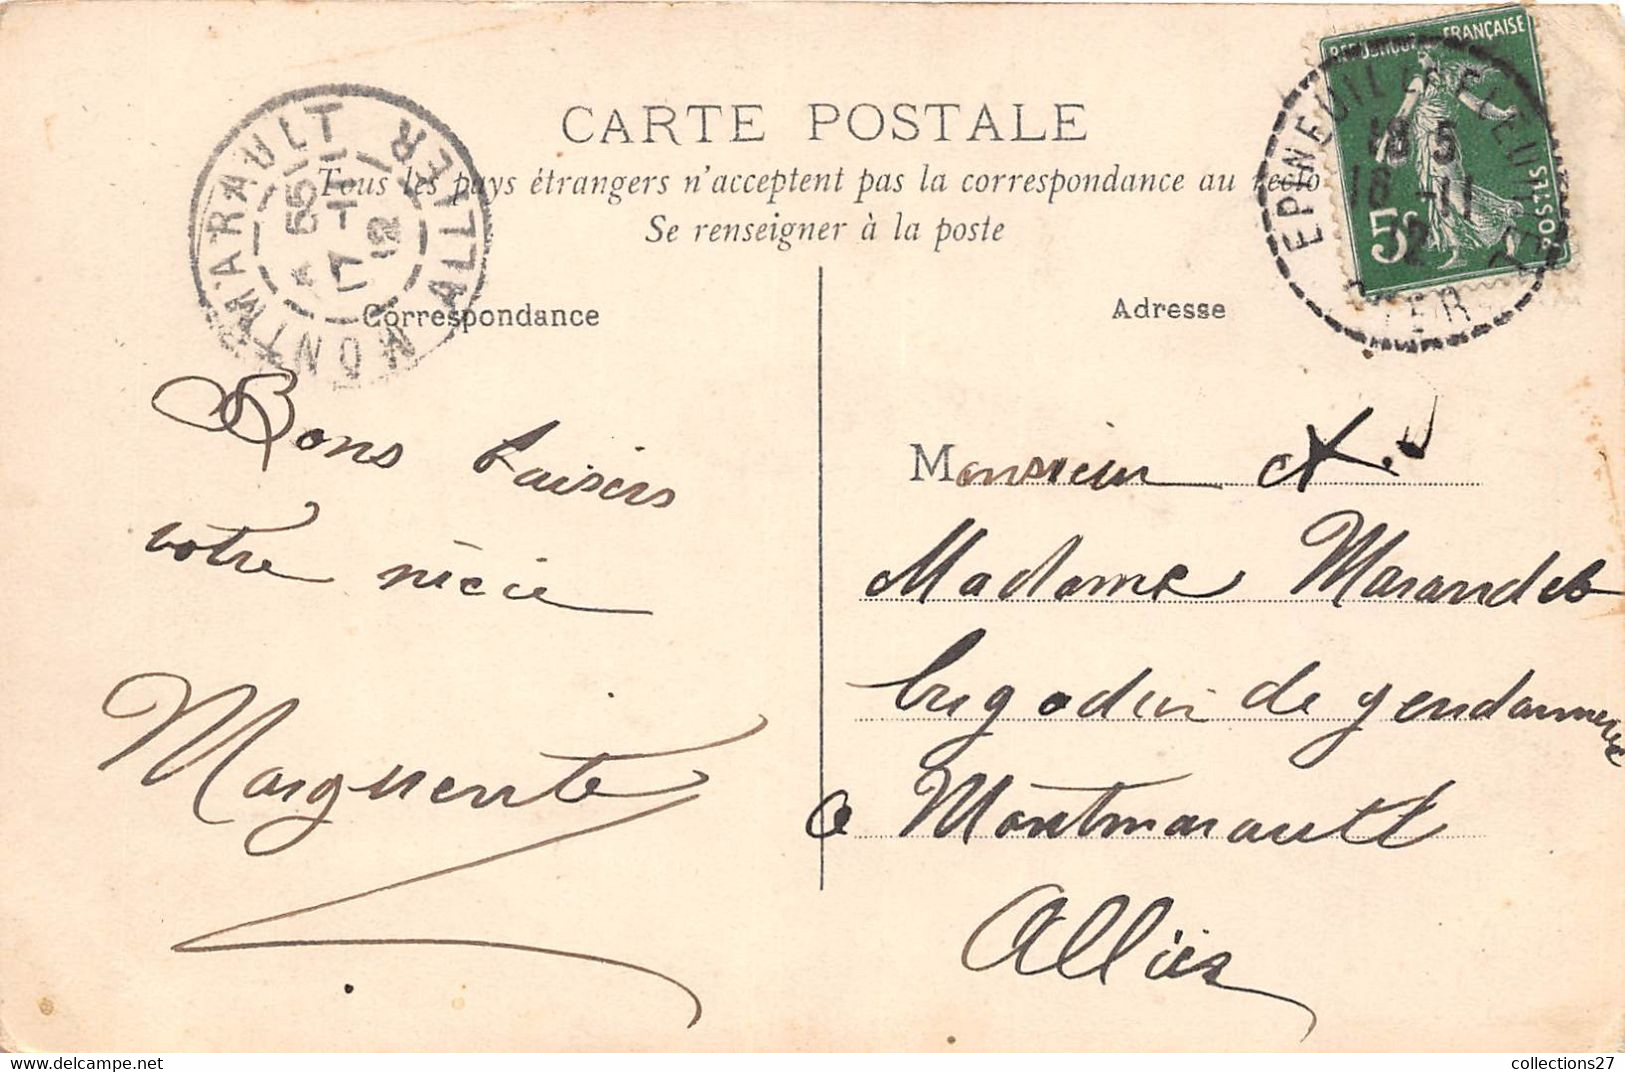 CARTE POSTALE
Tous les pays étrangers n'acceptent pas la correspondance au recto
Se renseigner à la poste
Correspondance
Adresse
REPUBLIQUE FRANÇAISE
POSTES
5c
EPINEUIL LE FLEURIEL
CHER
18 5
18 -11
12
MONTMARAULT
ALLIER
55
17-11
12
Bons baisers
votre nièce
Marguerite
Monsieur et
Madame Marandet
brigadier de gendarmerie
a Montmarault
Allier
delcampe.net
collections27